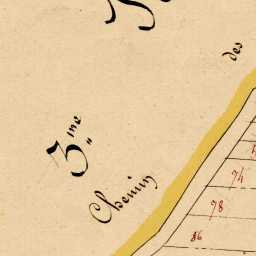 des
3.me
Chemin
74
78
86